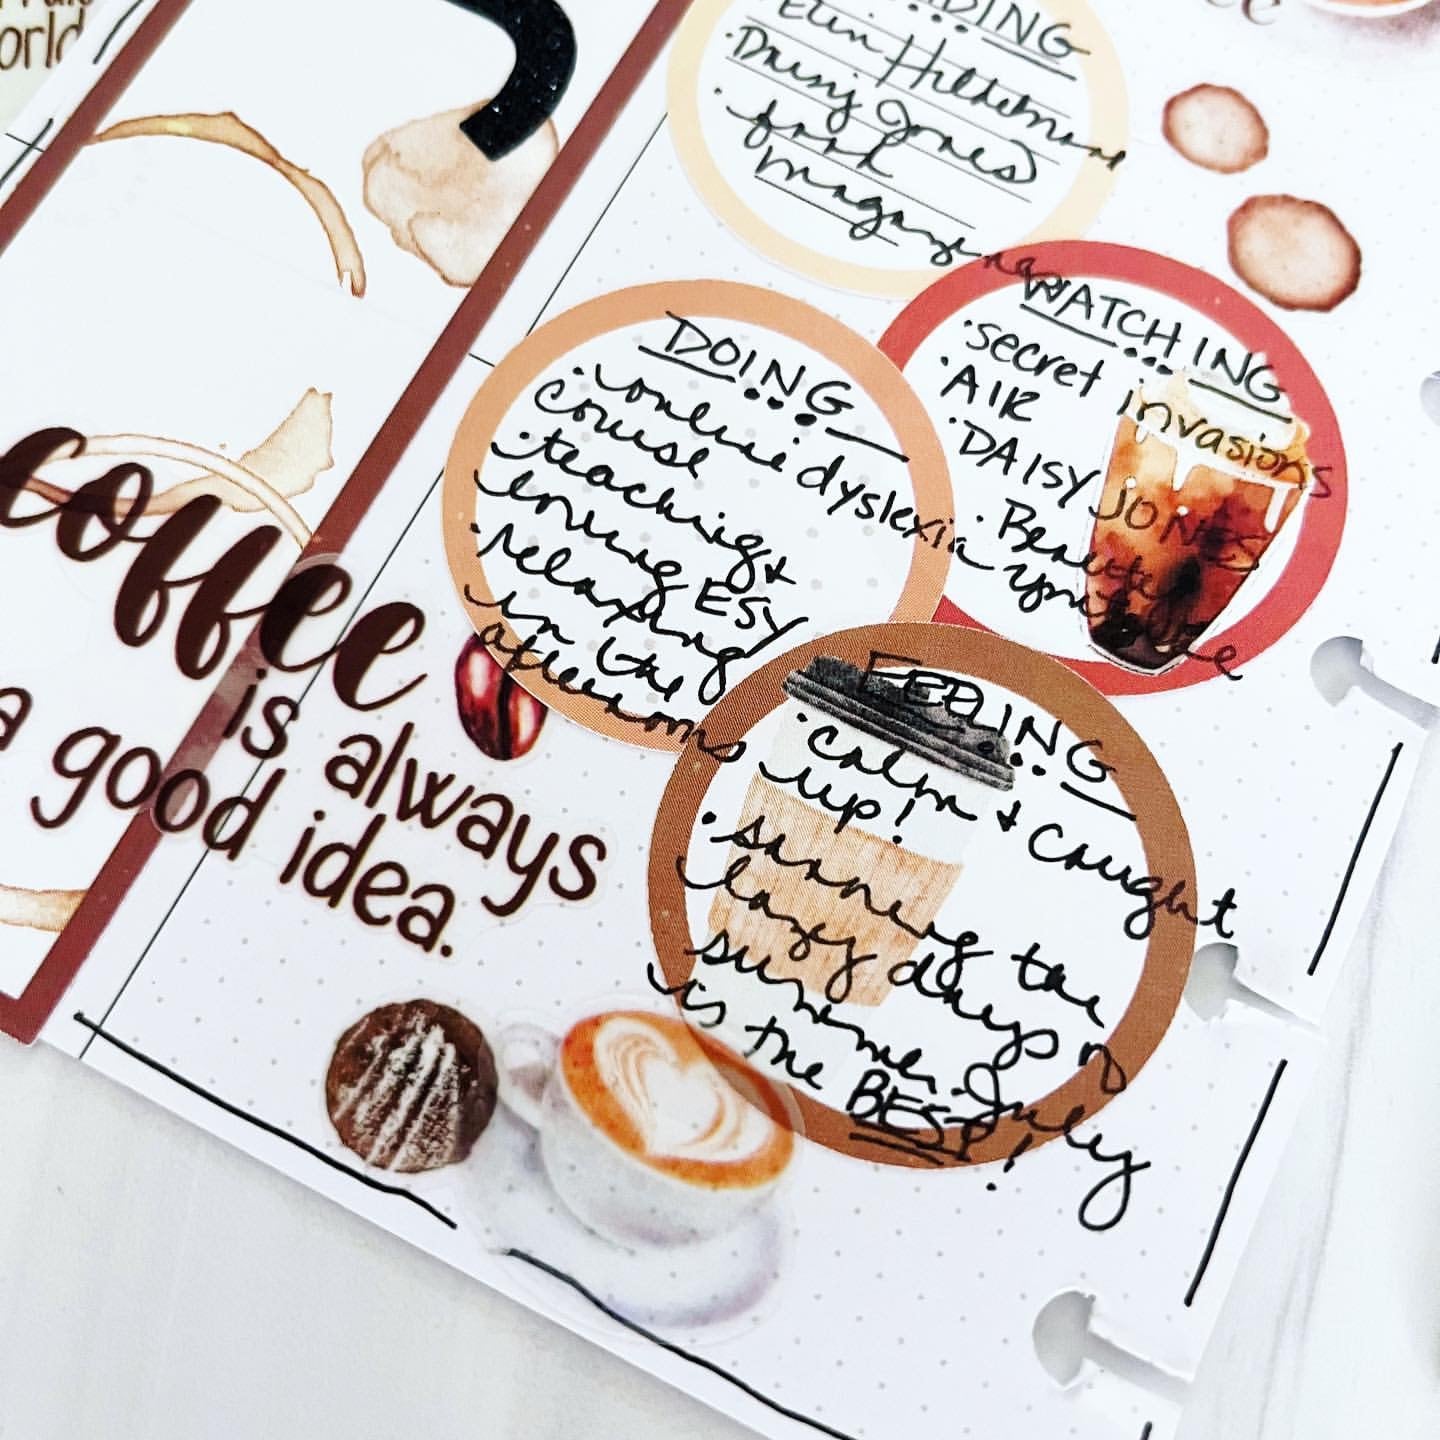 orld
READING
Elin Hilderbrand
• Daisy Jones
• food
magazines
WATCHING
• secret invasions
• AIR
• DAISY JONES
DOING
• online dyslexia
course
• teaching &
loving ESY
• relaxing
in the
afternoons
FEELING
• calm & caught
up!
• savoring the
lazy days of
summer. July
is the BEST!
coffee
is always
a good idea.